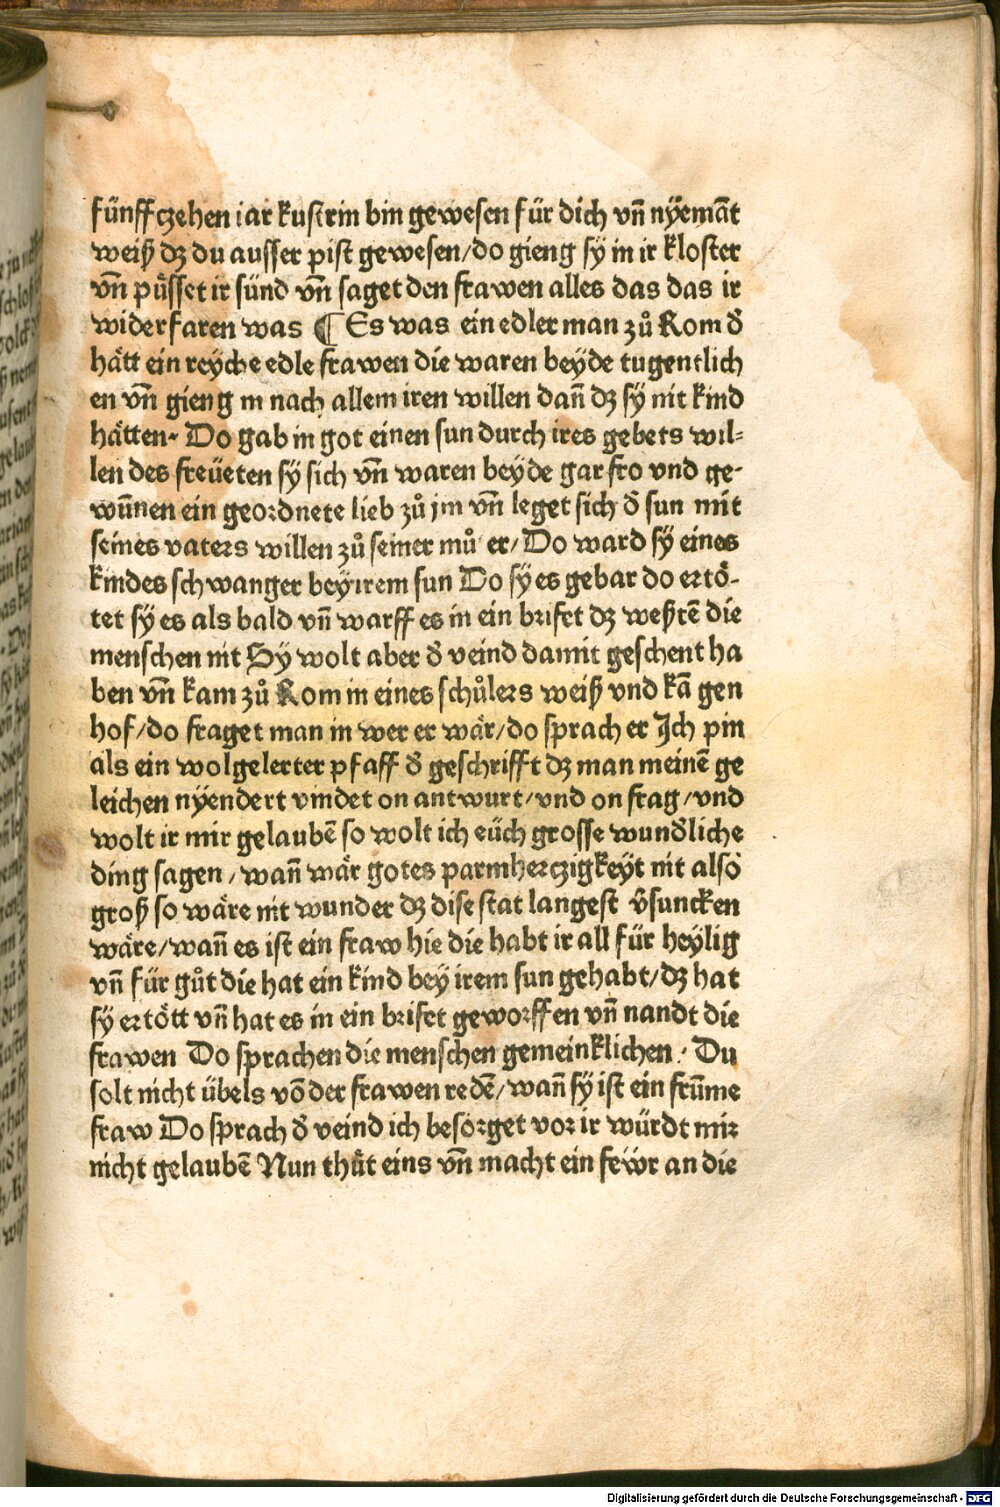 fünffczehen iar kustrin bin gewesen für dich vn̄ nyemāt
weiß dz du ausser pist gewesen/do gieng sy in ir kloster
vn̄ püsset ir sünd vn̄ saget den frawen alles das das ir
widerfaren was ¶ Es was ein edler man zů Rom d̄
hätt ein reyche edle frawen die waren beyde tugentlich
en vn̄ gieng in nach allem iren willen dan̄ dz sy nit kind
hätten· Do gab in got einen sun durch ires gebets wil⸗
len des freüeten sy sich vn̄ waren beyde gar fro vnd ge-
wūnen ein geordnete lieb zů jm vn̄ leget sich d̄ sun mit
seines vaters willen zů seiner mů er/Do ward sy eines
kindes schwanger bey irem sun Do sy es gebar do ertö-
tet sy es als bald vn̄ warff es in ein brifet dz weßtē die
menschen nit Sy wolt aber d̄ veind damit geschent ha
ben vn̄ kam zů Rom in eines schůlers weiß vnd kā gen
hof/do fraget man in wer er wär/do sprach er Jch pin
als ein wolgelerter pfaff d̄ geschrifft dz man meinē ge
leichen nyendert vindet on antwurt/vnd on frag/vnd
wolt ir mir gelaubē so wolt ich eüch grosse wund̄liche
ding sagen/wan̄ wär gotes parmherczigkeyt nit also
groß so wäre nit wunder dz dise stat langest v̄suncken
wäre/wan̄ es ist ein fraw hie die habt ir all für heylig
vn̄ für gůt die hat ein kind bey irem sun gehabt/dz hat
sy ertött vn̄ hat es in ein brifet geworffen vn̄ nandt die
frawen Do sprachen die menschen gemeinklichen: Du
solt nicht übels vō der frawen redē/wan̄ sy ist ein frūme
fraw Do sprach d̄ veind ich besorget vor ir würdt mir
nicht gelaubē Nun thüt eins vn̄ macht ein fewr an die
Digitalisierung gefördert durch die Deutsche Forschungsgemeinschaft - DFG